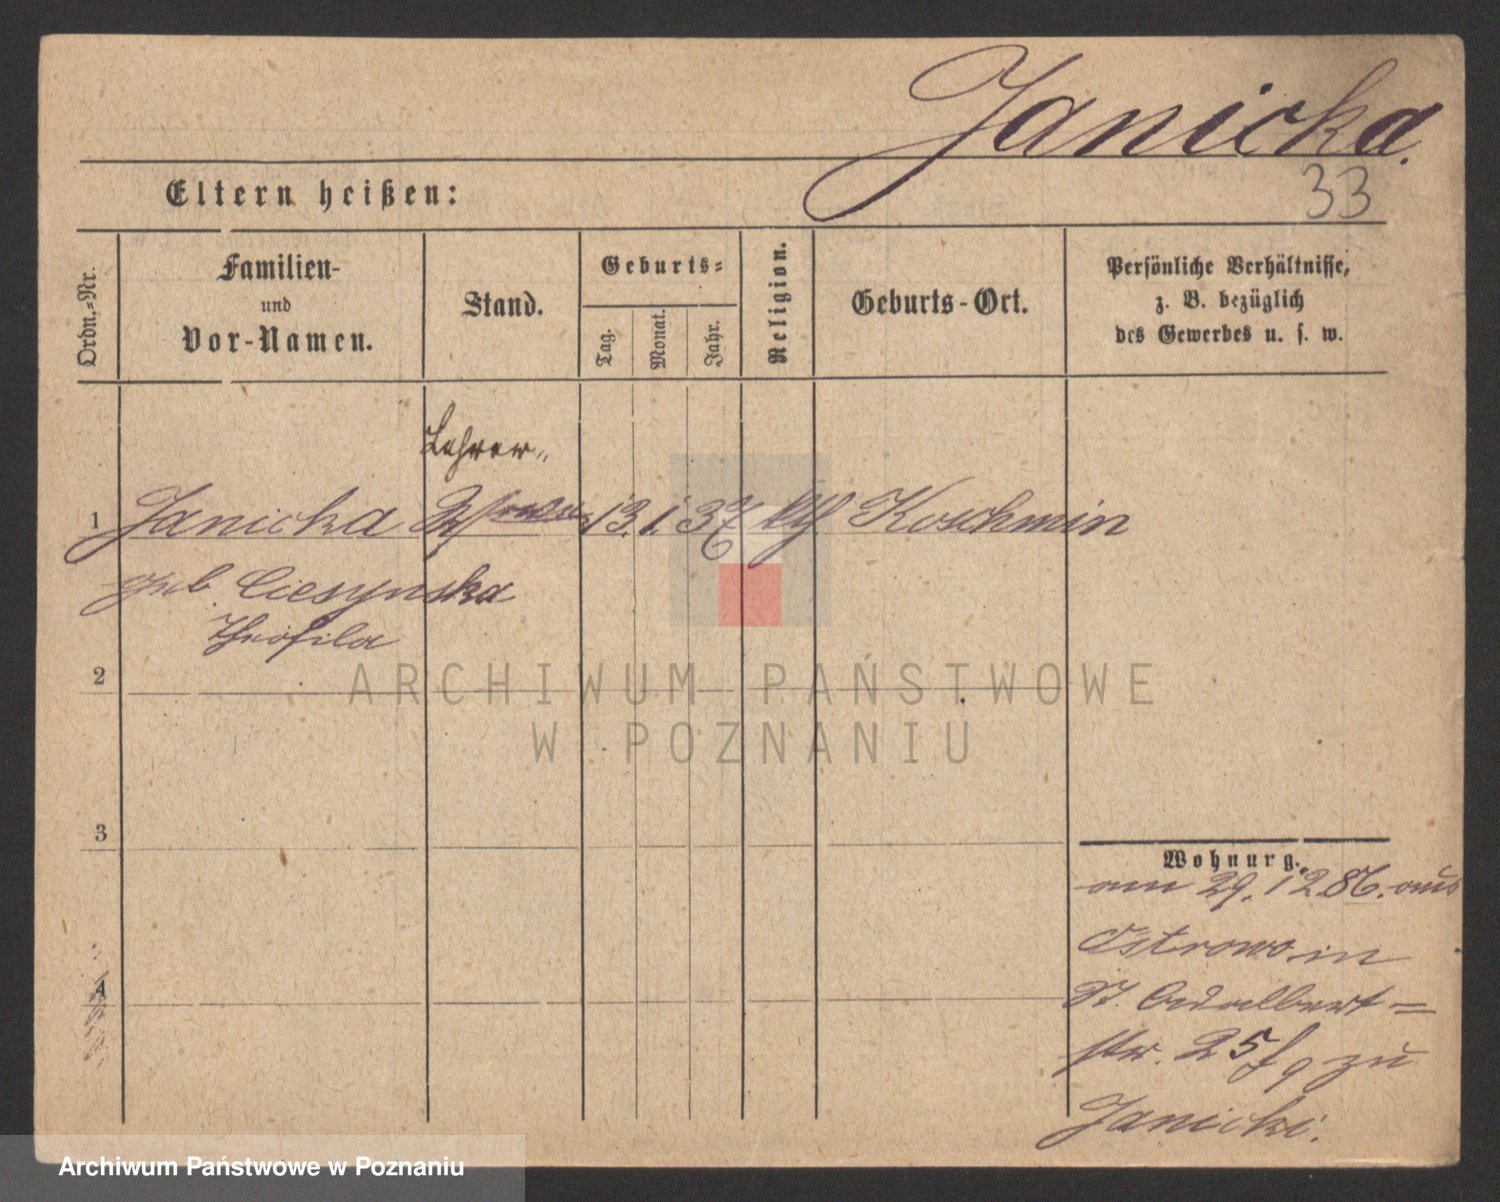 Janicka.
33
Eltern heißen:
Ordn.-Nr.
Familien-
und
Vor-Namen.
Stand.
Geburts-
Tag.
Monat.
Jahr.
Religion.
Geburts-Ort.
Persönliche Verhältnisse,
z. B. bezüglich
des Gewerbes u. s. w.
Lehrer-
1 Janicka 13. 1. 37 kth. Koschmin
geb Ciesynska
Theofila
2
3
4
Wohnung.
am 29.12.86. aus
Ostrowo in
St. Adalbert=
str. 25/9 zu
Janicki.
ARCHIWUM PAŃSTWOWE
W POZNANIU
Archiwum Państwowe w Poznaniu